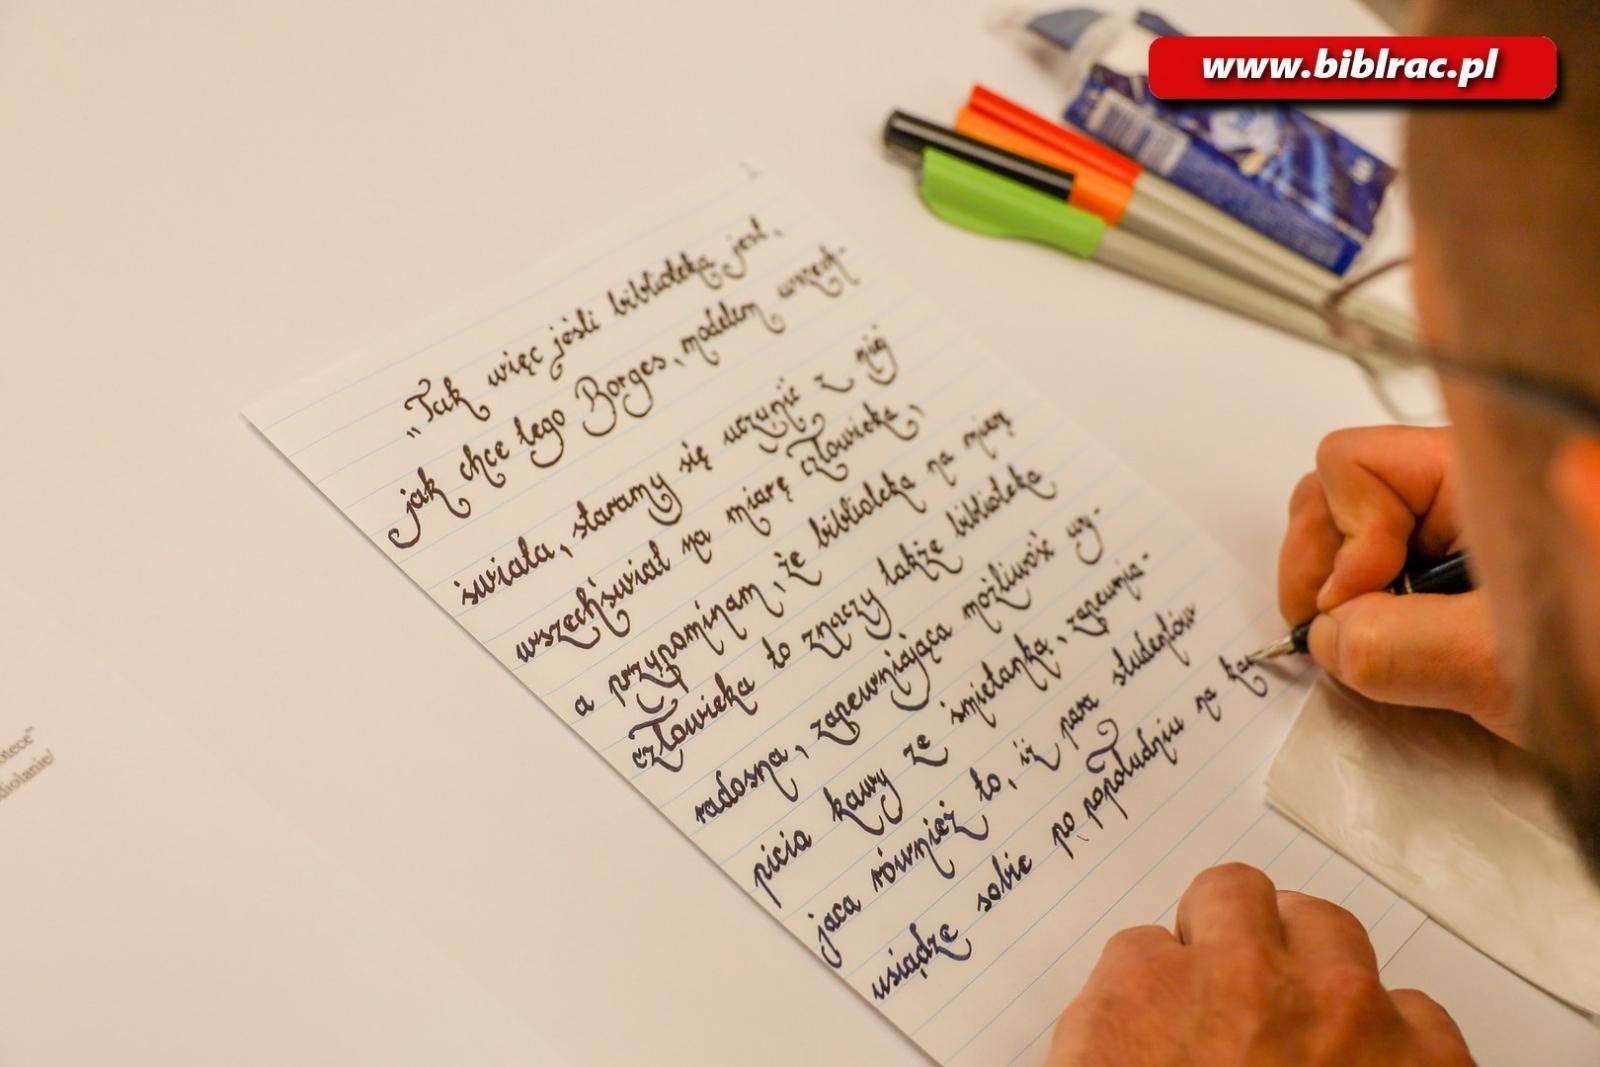 www.biblrac.pl
„Tak więc jeśli biblioteka jest,
jak chce tego Borges, modelem wszech-
świata, staramy się uczynić z niej
wszechświat na miarę człowieka,
a przypominam, że biblioteka na miarę
człowieka to znaczy także biblioteka
radosna, zapewniająca możliwość wy-
picia kawy ze śmietanką, zapewnia-
jaca również to, iż para studentów
usiądze sobie pę popołudniu na ka
otece"
diolanie/